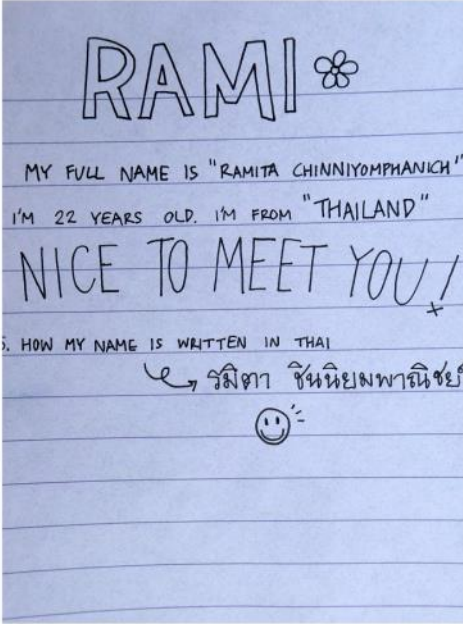 RAMI
MY FULL NAME IS "RAMITA CHINNIYOMPHANICH"
I'M 22 YEARS OLD. I'M FROM "THAILAND"
NICE TO MEET YOU!
S. HOW MY NAME IS WRITTEN IN THAI
รมิตา ชินนิยมพาณิชย์